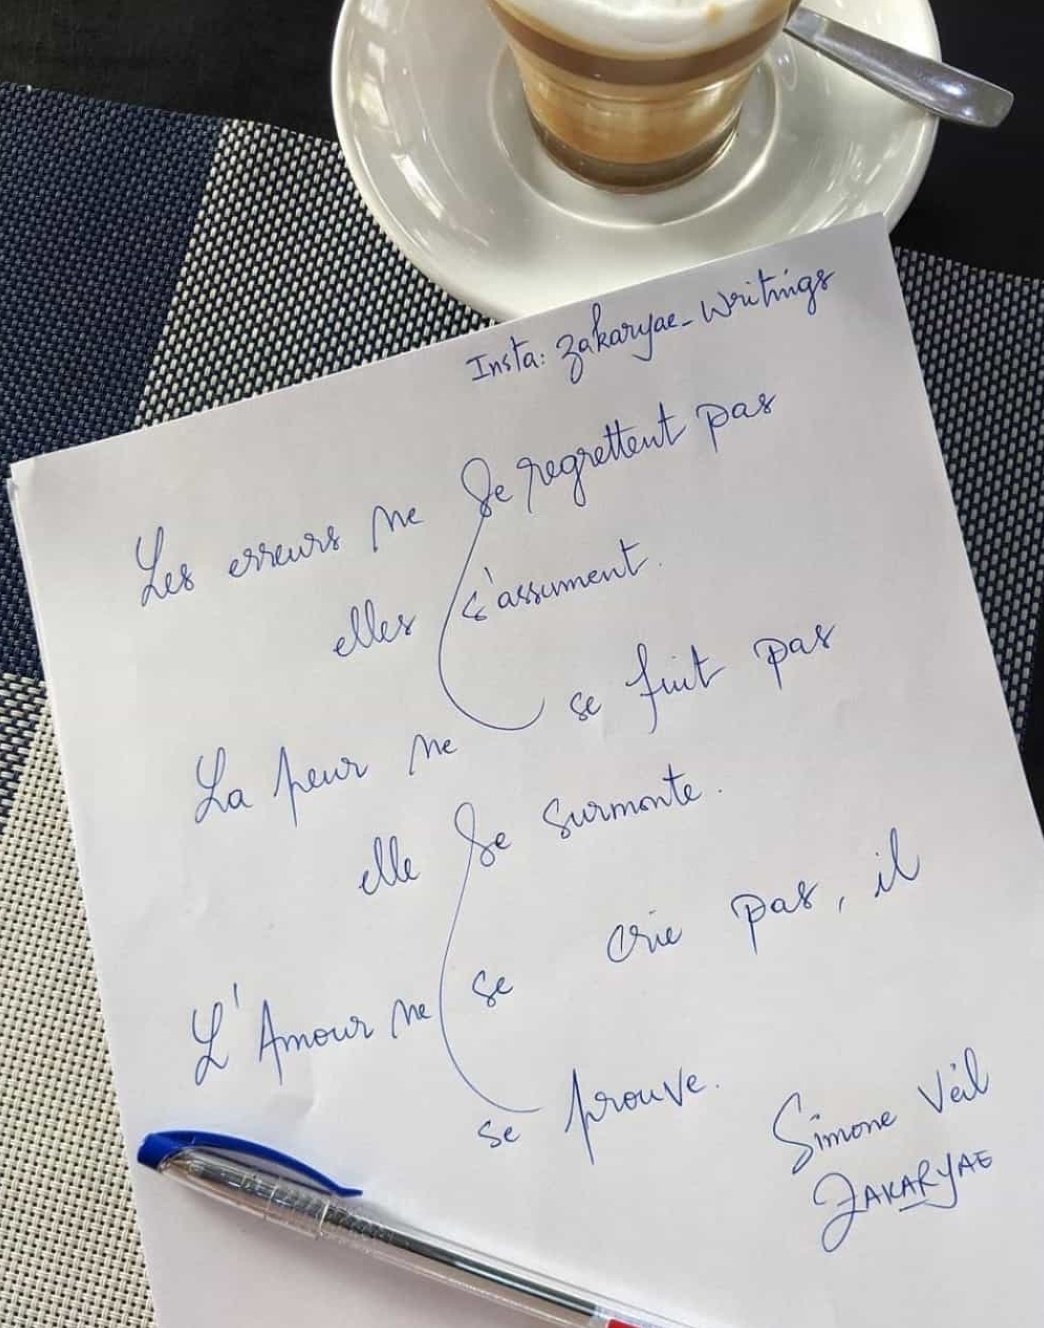 Insta: zakaryae_writings
Les erreurs ne se regrettent pas
elles s'assument.
La peur ne se fuit pas
elle se surmonte.
L'Amour ne se crie pas, il
se prouve.
Simone Veil
ZAKARYAE